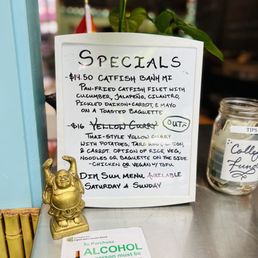 SPECIALS
-$14.50 CATFISH BANH MI
PAN-FRIED CATFISH FILET WITH
CUCUMBER, JALAPEÑO, CILANTRO,
PICKLED DAIKON+CARROT & MAYO
ON A TOASTED BAGUETTE
-$16 YELLOW CURRY OUT
THAI-STYLE YELLOW CURRY
WITH POTATOES,
& CARROT. OPTION OF RICE, VEG,
NOODLES OR BAGUETTE ON THE SIDE
-CHICKEN OR VEGAN W/ TOFU
DIM SUM MENU AVAILABLE
SATURDAY & SUNDAY
TIPS
To Purchase
ALCOHOL
person must be